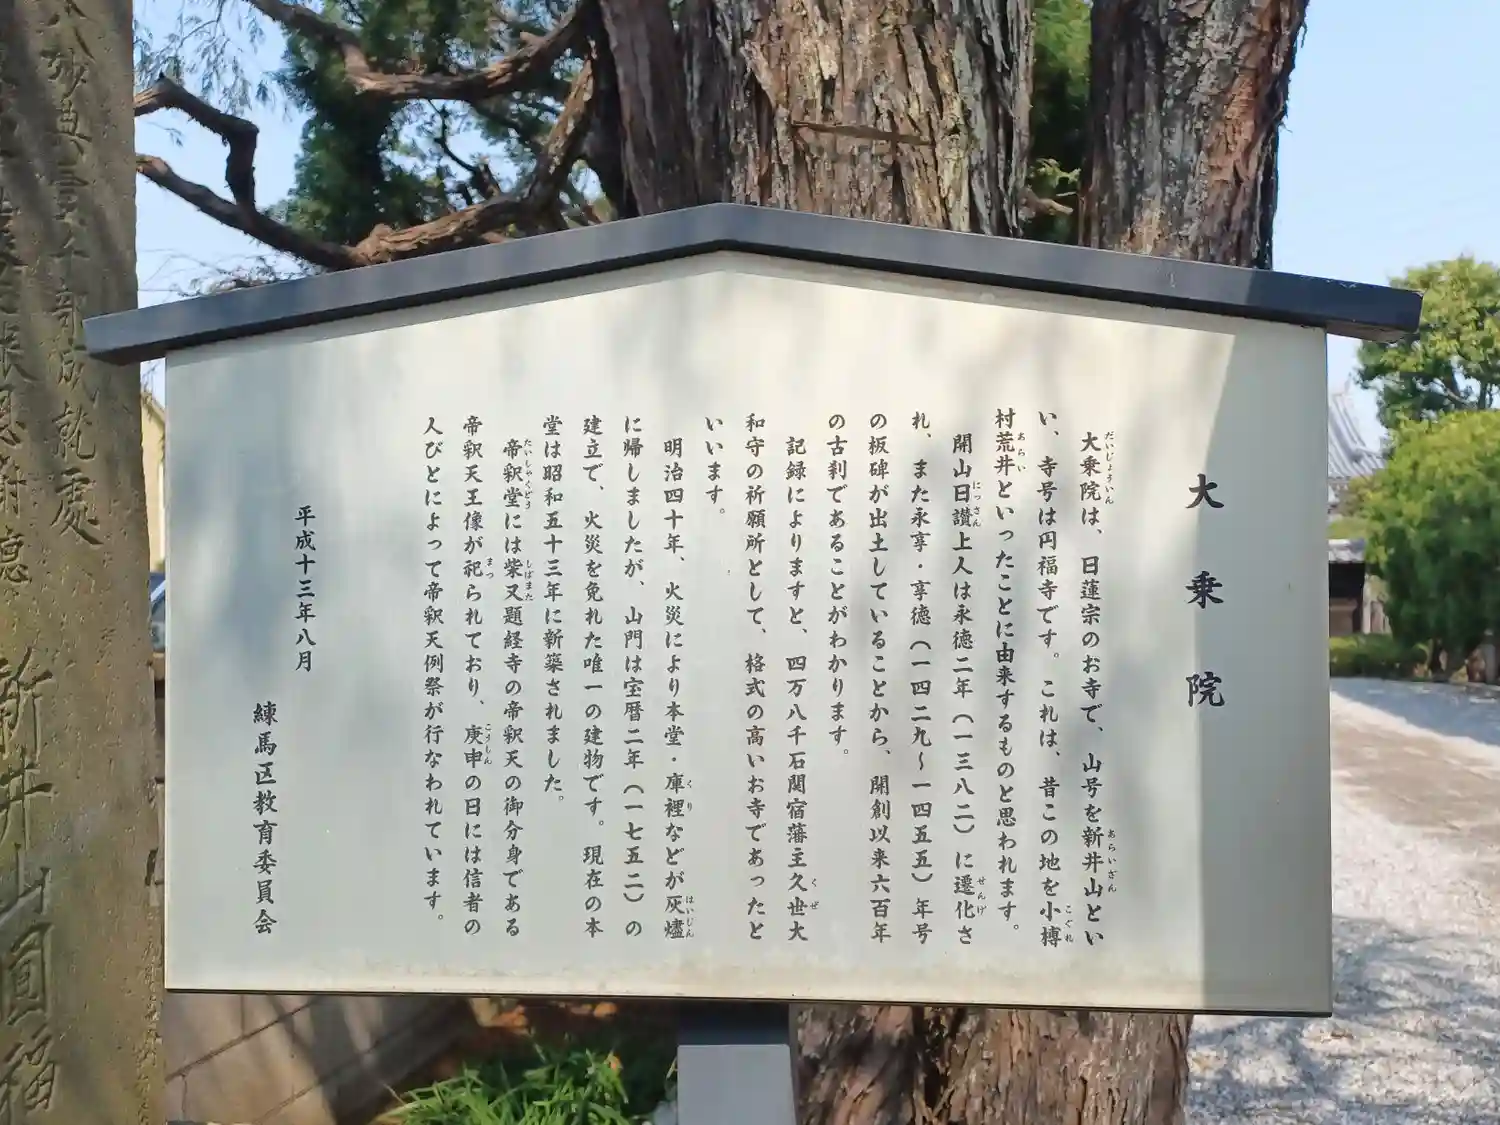 大乗院
大乗院は、日蓮宗のお寺で、山号を新井山とい
い、寺号は円福寺です。これは、昔この地を小榑
村荒井といったことに由来するものと思われます。
開山日讃上人は永徳二年（一三八二）に遷化さ
れ、また永享・享徳（一四二九〜一四五五）年号
の板碑が出土していることから、開創以来六百年
の古刹であることがわかります。
記録によりますと、四万八千石関宿藩主久世大
和守の祈願所として、格式の高いお寺であったと
いいます。
明治四十年、火災により本堂・庫裡などが灰燼
に帰しましたが、山門は宝暦二年（一七五二）の
建立で、火災を免れた唯一の建物です。現在の本
堂は昭和五十三年に新築されました。
帝釈堂には柴又題経寺の帝釈天の御分身である
帝釈天王像が祀られており、庚申の日には信者の
人びとによって帝釈天例祭が行なわれています。
平成十三年八月
練馬区教育委員会
部成就處
新井山圓福